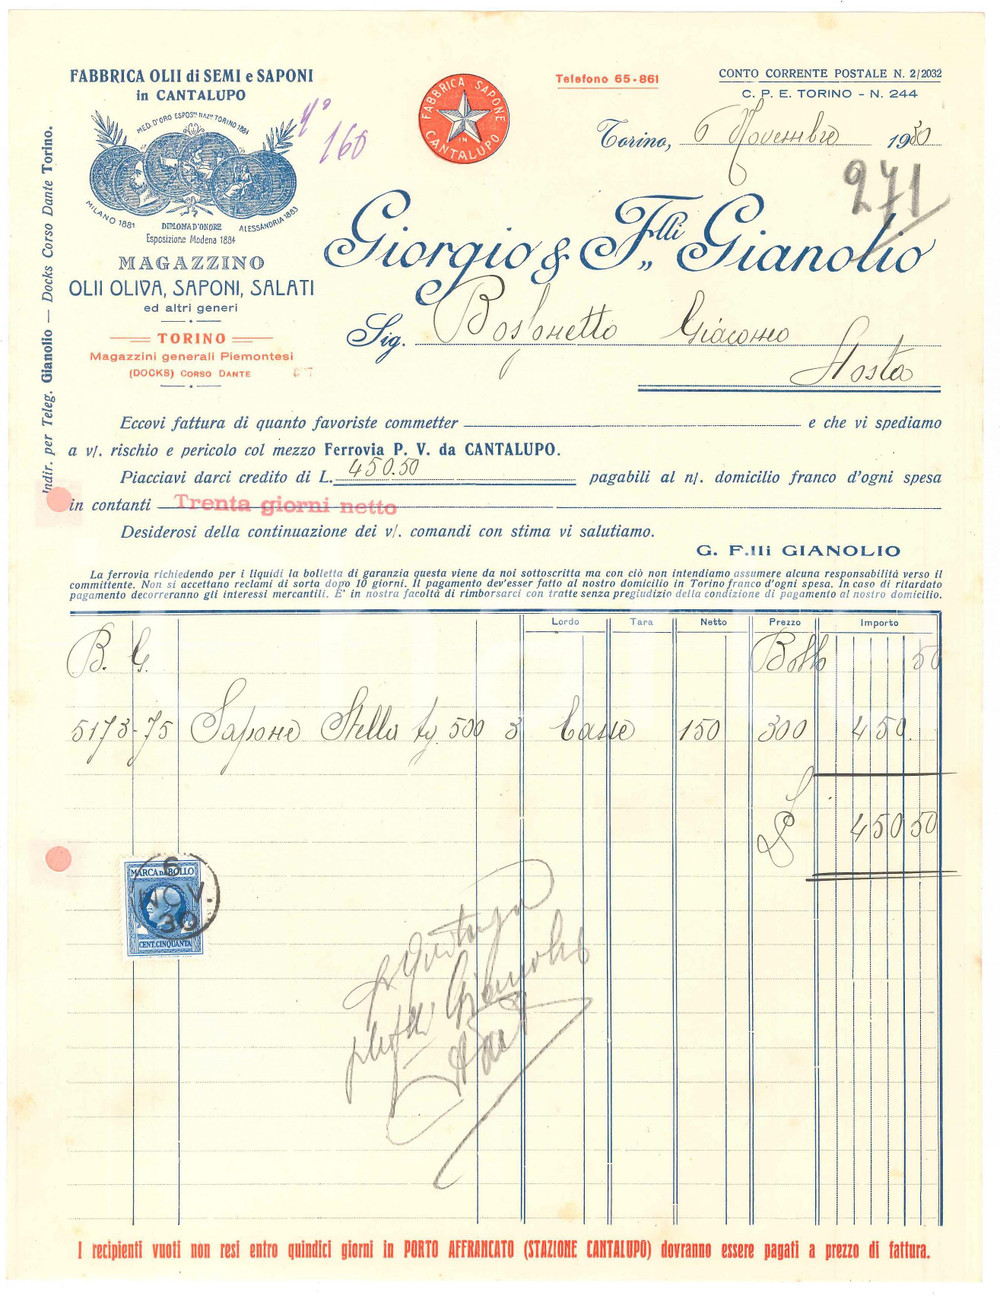 FABBRICA OLII di SEMI e SAPONI
in CANTALUPO
MED. D'ORO ESPOS.NE NAZ.LE TORINO 1884
MILANO 1881
DIPLOMA D'ONORE
Esposizione Modena 1884
ALESSANDRIA 1883
MAGAZZINO
OLII OLIVA, SAPONI, SALATI
ed altri generi
TORINO
Magazzini generali Piemontesi
(DOCKS) CORSO DANTE
Indir. per Teleg. Gianolio — Docks Corso Dante Torino.
160
FABBRICA SAPONE
IN
CANTALUPO
Telefono 65-861
CONTO CORRENTE POSTALE N. 2/2032
C. P. E. TORINO - N. 244
Torino, 6 Novembre 1930
271
Giorgio & F.lli Gianolio
Sig. Giacomo
Aosta
Eccovi fattura di quanto favoriste commetter e che vi spediamo
a v/. rischio e pericolo col mezzo Ferrovia P. V. da CANTALUPO.
Piacciavi darci credito di L. 450.50 pagabili al n/. domicilio franco d'ogni spesa
in contanti Trenta giorni netto
Desiderosi della continuazione dei v/. comandi con stima vi salutiamo.
G. F.lli GIANOLIO
La ferrovia richiedendo per i liquidi la bolletta di garanzia questa viene da noi sottoscritta ma con ciò non intendiamo assumere alcuna responsabilità verso il
committente. Non si accettano reclami di sorta dopo 10 giorni. Il pagamento dev'esser fatto al nostro domicilio in Torino franco d'ogni spesa. In caso di ritardato
pagamento decorreranno gli interessi mercantili. E' in nostra facoltà di rimborsarci con tratte senza pregiudizio della condizione di pagamento al nostro domicilio.
Lordo Tara Netto Prezzo Importo
B. G. Bollo 50
5173-75 Sapone Stella 500 3 Casse 150 300 450.
450 50
MARCA DA BOLLO
6
NOV.
30
CENT. CINQUANTA
Gianolio
I recipienti vuoti non resi entro quindici giorni in PORTO AFFRANCATO (STAZIONE CANTALUPO) dovranno essere pagati a prezzo di fattura.